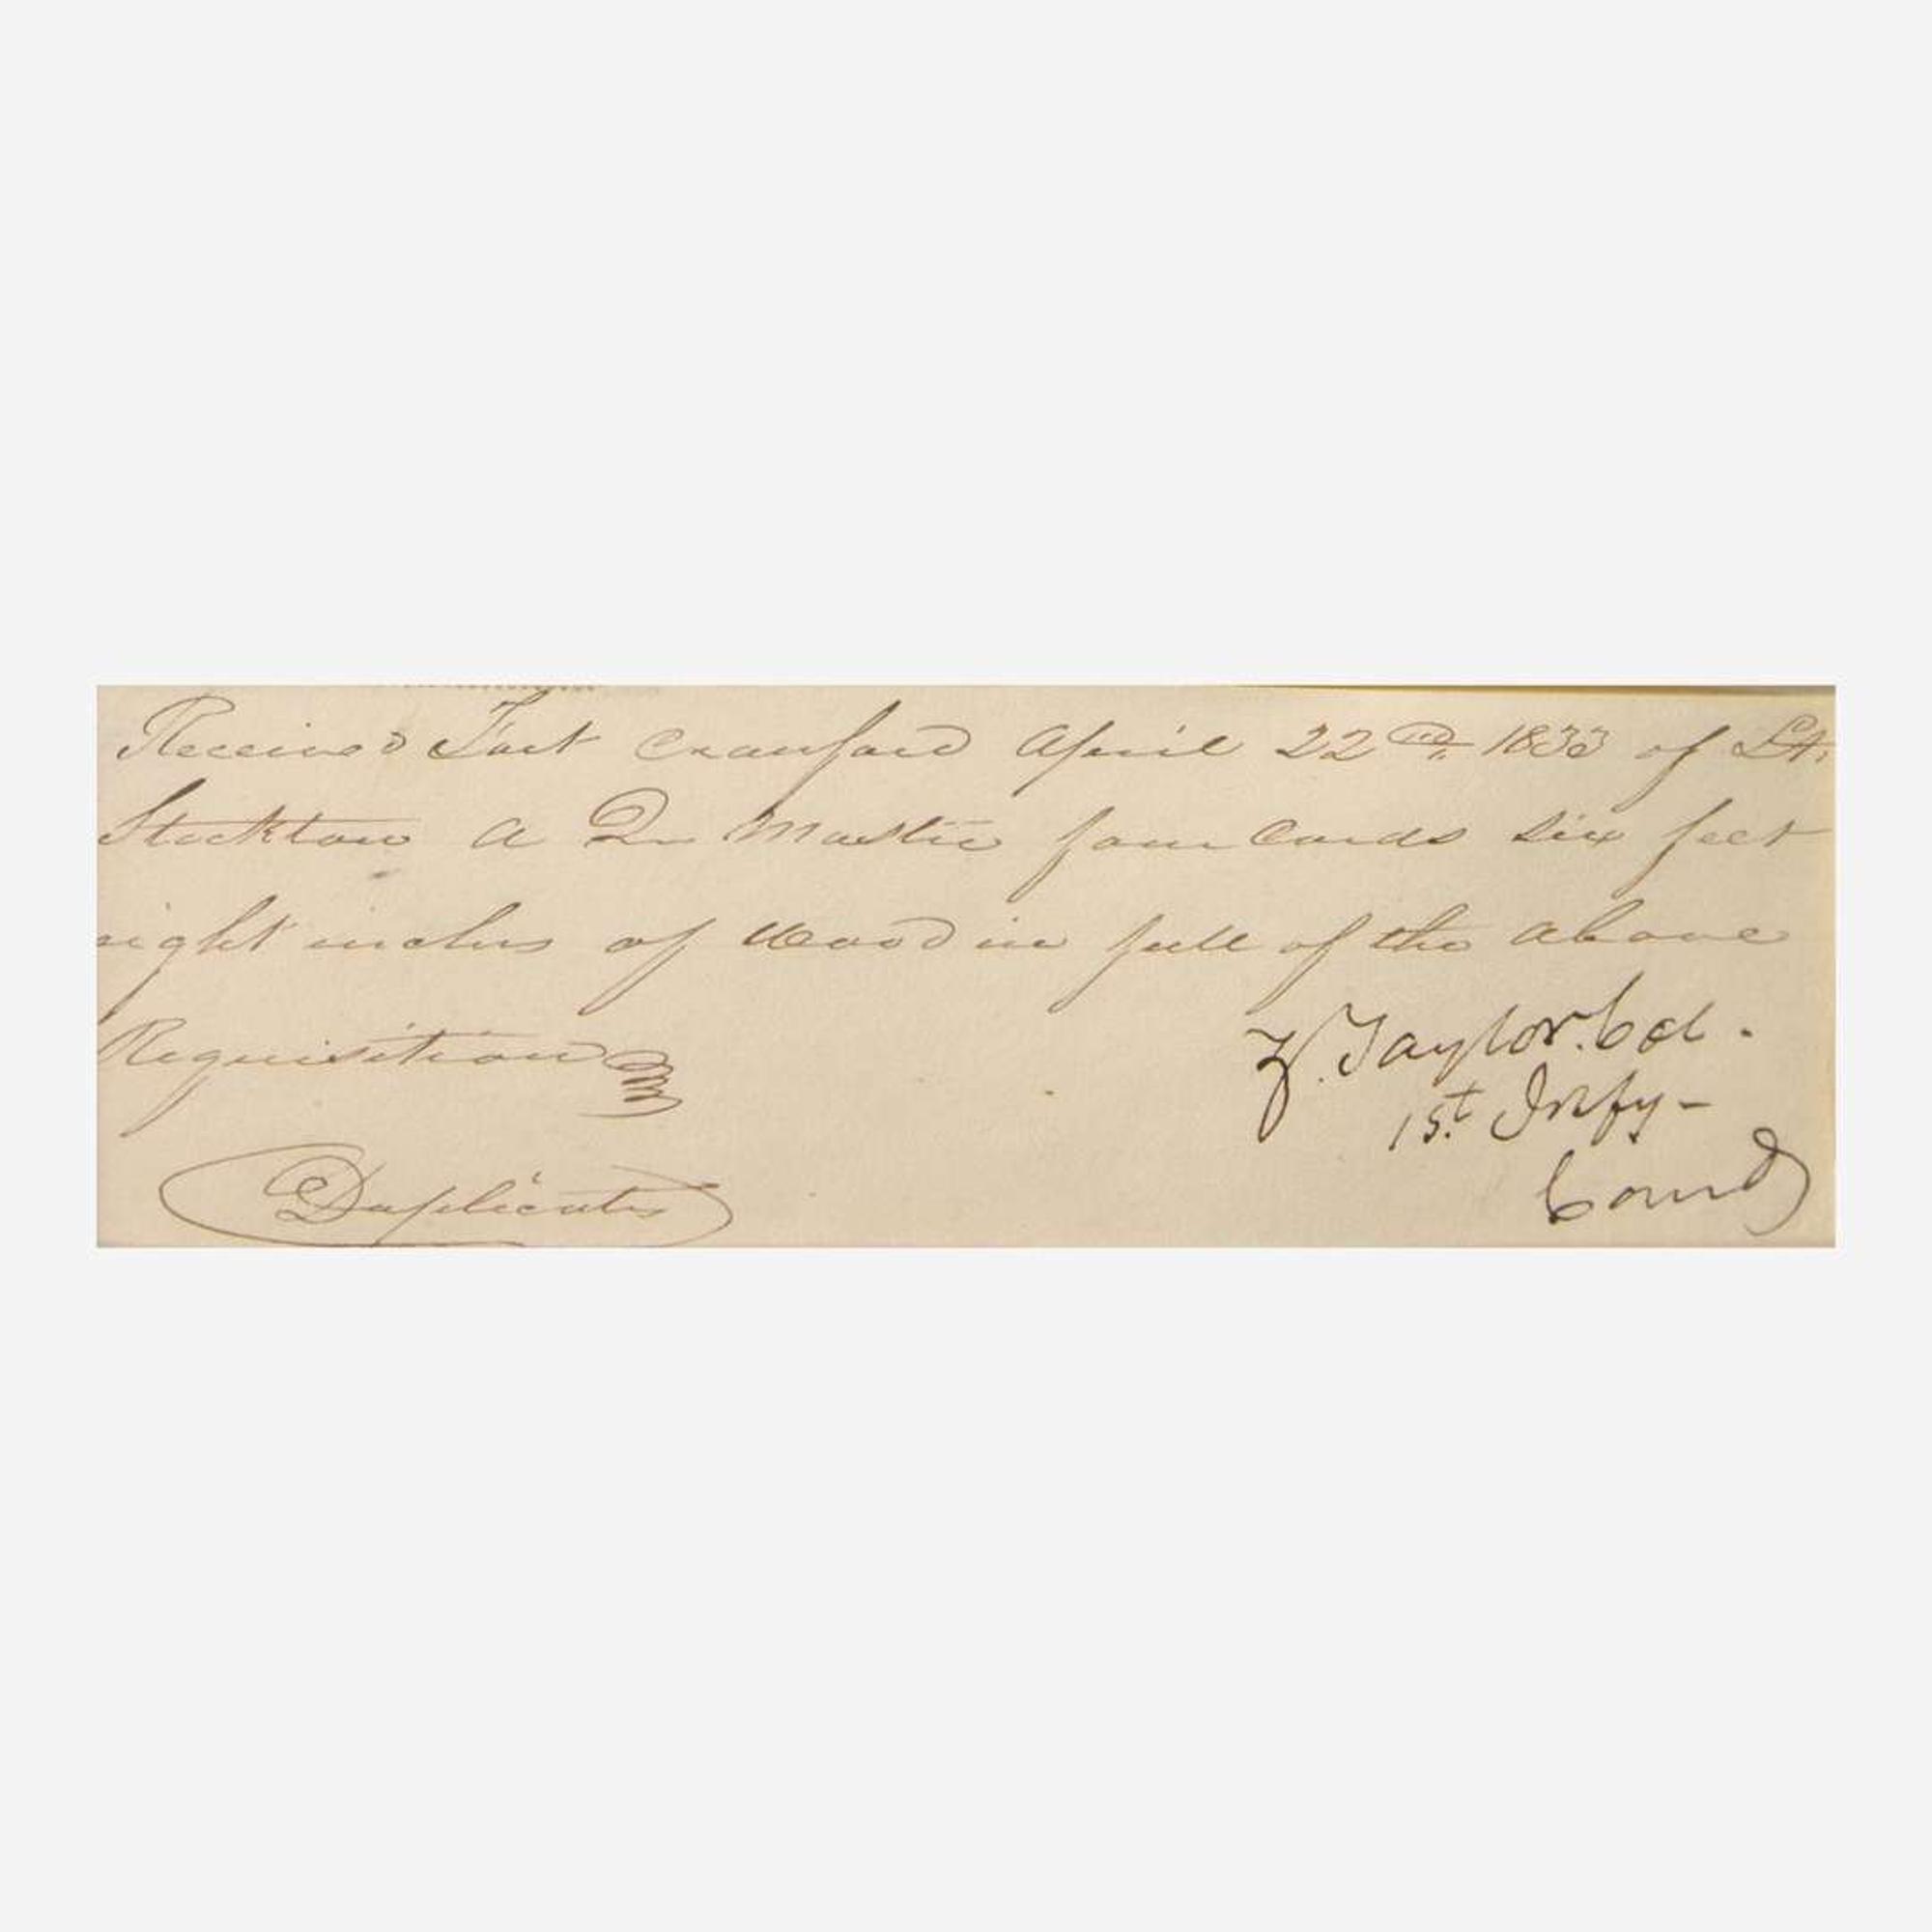 Received Fort Crawford April 22nd. 1833 of Lt.
Stockton A Qr Master four Cords six feet
eight inches of Wood in full of the above
Requisition
Z. Taylor. Col.
1st. Infy-
Comd
Duplicate